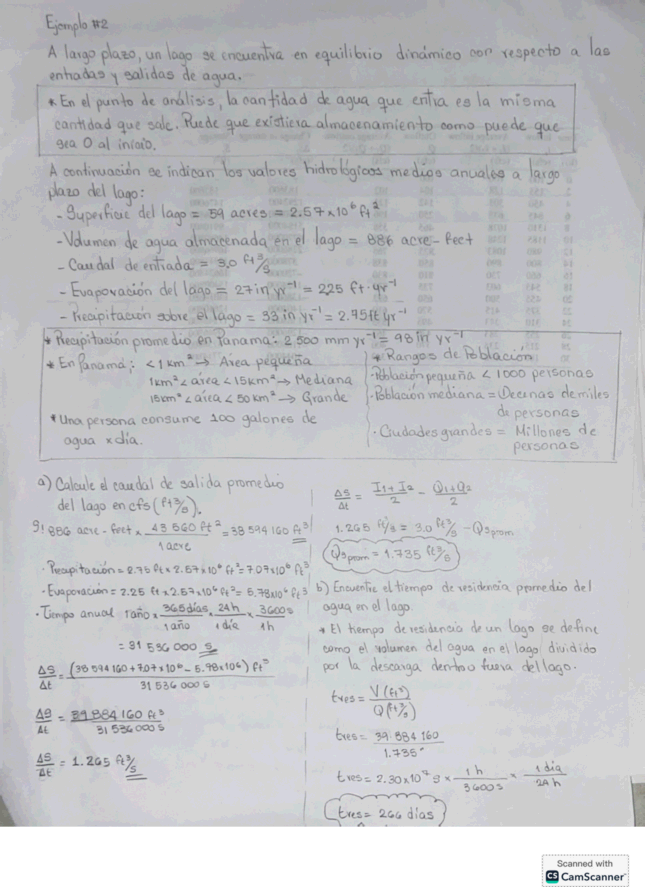 Ejemplo #2
A largo plazo, un lago se encuentra en equilibrio dinámico con respecto a las
entradas y salidas de agua.
* En el punto de análisis, la cantidad de agua que entra es la misma
cantidad que sale. Puede que existiera almacenamiento como puede que
sea 0 al inicio.
A continuación se indican los valores hidrológicos medios anuales a largo
plazo del lago:
- Superficie del lago = 59 acres = 2.57x10⁶ ft²
- Volumen de agua almacenada en el lago = 886 acre-feet
- Caudal de entrada = 3.0 ft³/s
- Evaporación del lago = 27 in yr⁻¹ = 2.25 ft·yr⁻¹
- Precipitación sobre el lago = 33 in yr⁻¹ = 2.75 ft yr⁻¹
* Precipitación promedio en Panamá: 2,500 mm yr⁻¹ = 98 in yr⁻¹
* En Panamá: < 1 km² → Area pequeña
1 km² < área < 15 km² → Mediana
15 km² < área < 50 km² → Grande
* Una persona consume 100 galones de
agua x día.
* Rangos de Población
· Población pequeña < 1000 personas
· Población mediana = Decenas de miles
de personas
· Ciudades grandes = Millones de
personas
a) Calcule el caudal de salida promedio
del lago en cfs (ft³/s).
S: 886 acre-feet x 43 560 ft² / 1 acre = 38 594 160 ft³
· Precipitación = 2.75 ft x 2.57x10⁶ ft² = 7.07x10⁶ ft³
· Evaporación = 2.25 ft x 2.57x10⁶ ft² = 5.78x10⁶ ft³
· Tiempo anual 1 año x 365 días / 1 año x 24 h / 1 día x 3600 s / 1 h
= 31 536 000 s
ΔS/Δt = (38 594 160 + 7.07x10⁶ - 5.78x10⁶) ft³ / 31 536 000 s
ΔS/Δt = 39 884 160 ft³ / 31 536 000 s
ΔS/Δt = 1.265 ft³/s
ΔS/Δt = I1 + I2 / 2 - Q1 + Q2 / 2
1.265 ft³/s = 3.0 ft³/s - Qs prom
Qs prom = 1.735 ft³/s
b) Encuentre el tiempo de residencia promedio del
agua en el lago
* El tiempo de residencia de un lago se define
como el volumen del agua en el lago dividido
por la descarga dentro fuera del lago.
tres = V (ft³) / Q (ft³/s)
tres = 39 884 160 / 1.735
tres = 2.30x10⁷ s x 1 h / 3600 s x 1 día / 24 h
tres = 266 días
Scanned with
CS CamScanner